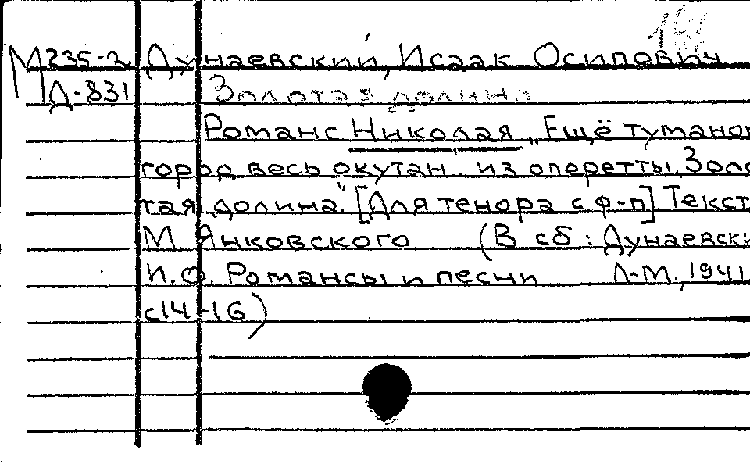 М235-2 Дунаевский, Исаак Осипович
Д-831 Золотая долина
Романс Николая „Ещё туманом
город весь окутан" из оперетты „Золо
тая долина". [Для тенора с ф-п] Текст
М. Янковского (В сб: Дунаевски
И.О. Романсы и песни Л-М., 1941
с14-16)